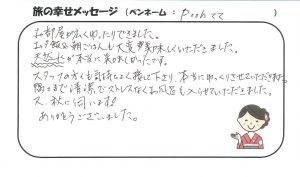 旅の幸せメッセージ (ペンネーム：Poohママ)
お部屋が広くゆったりできました。
お夕飯も朝ごはんも大変美味しくいただきました。
天ぷらが本当に美味しかったです。
スタッフの方も気持ちよく接して下さり、本当にゆっくりさせていただきました。
隅々まで清潔でストレスなくお風呂も入らせていただきました。
又、秋に伺います!
ありがとうございました。